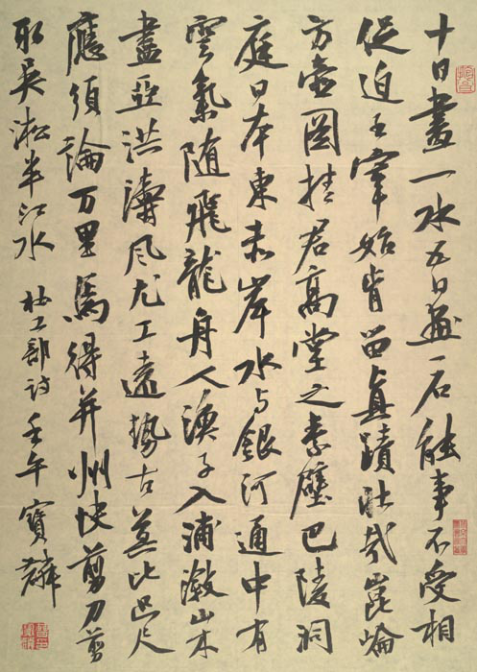 十日畫一水五日畫一石能事不受相
促迫王宰始肯留真蹟壯哉崑崙
方壺圖挂君高堂之素壁巴陵洞
庭日本東赤岸水与銀河通中有
雲氣隨飛龍舟人漁子入浦漵山木
盡亞洪濤風尤工遠勢古莫比咫尺
應須論万里焉得并州快剪刀剪
取吳淞半江水 杜工部詩 壬午 寶麟